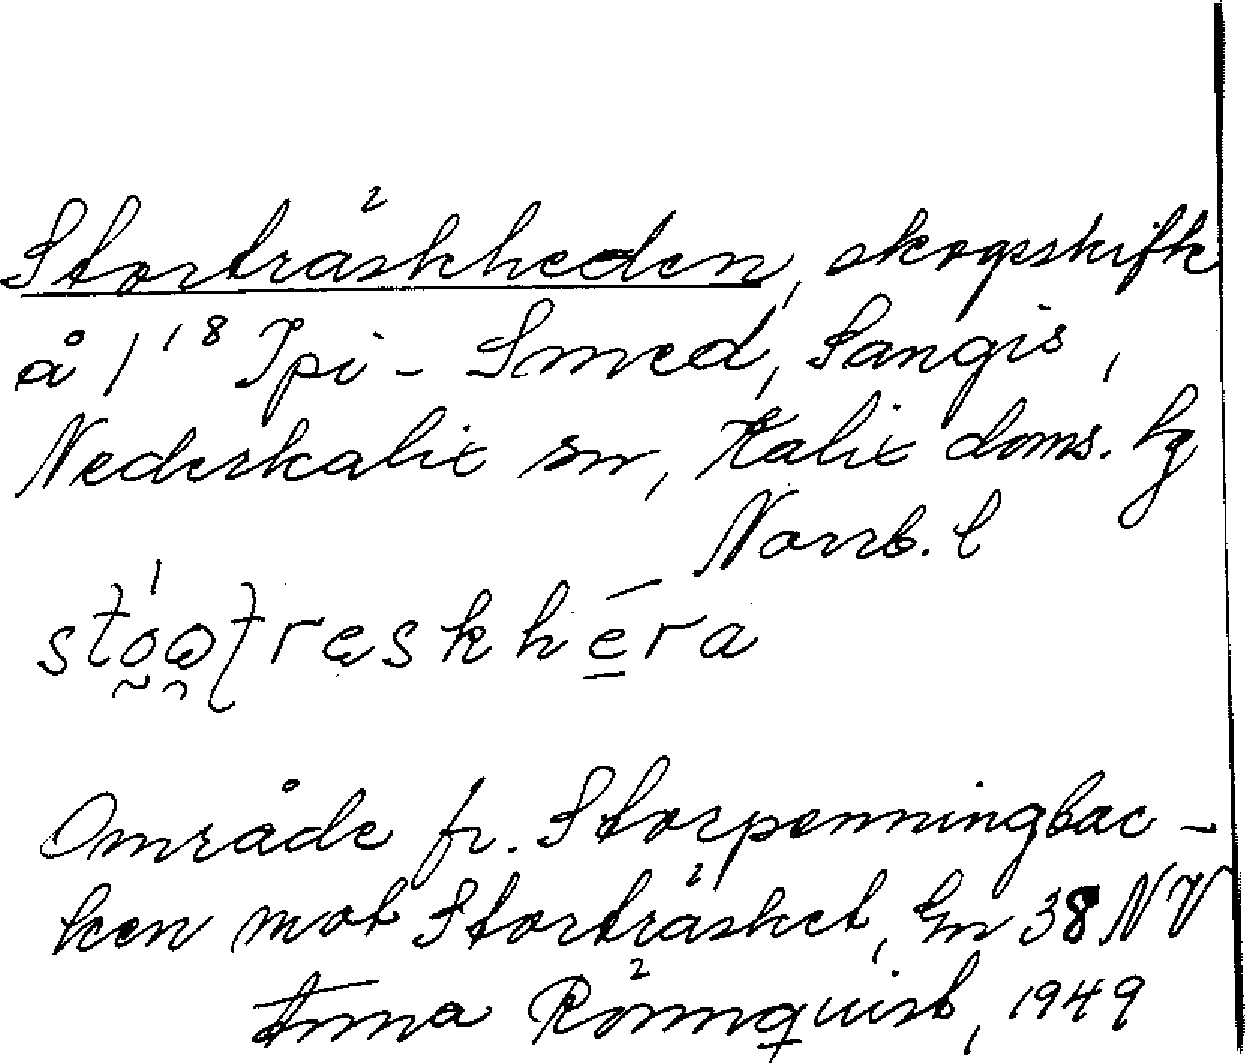 Storträskheden, skogsskifte
å 1¹⁸ Ipi - Smed, Sangis,
Nederkalix sn, Kalix doms. hg
Norrb. l
Område fr. Storpenningbac-
ken mot Storträsket, Gn 38 NV
Anna Rönnquist, 1949